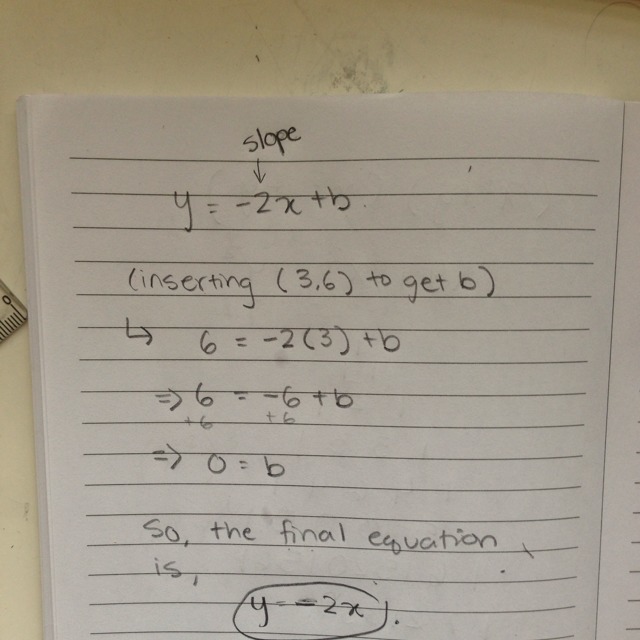 slope
↓
y = -2x + b
(inserting (3,6) to get b)
↳ 6 = -2(3) + b
⇒ 6 = -6 + b
+6 +6
⇒ 0 = b
So, the final equation
is,
y = -2x.